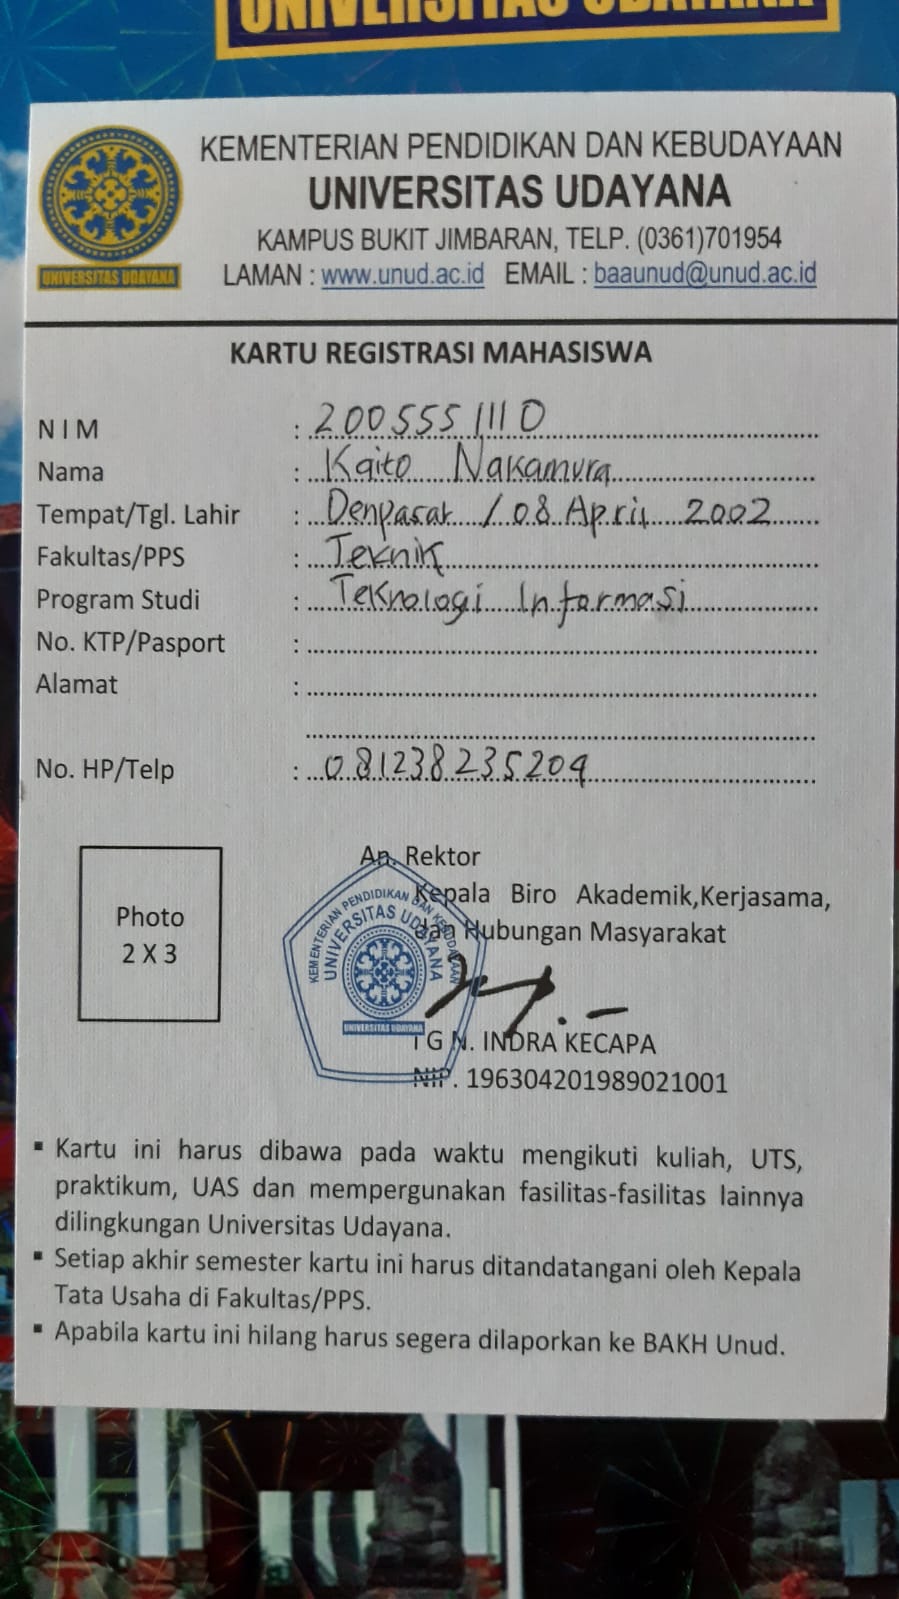 UNIVERSITAS UDAYANA
KEMENTERIAN PENDIDIKAN DAN KEBUDAYAAN
UNIVERSITAS UDAYANA
KAMPUS BUKIT JIMBARAN, TELP. (0361)701954
LAMAN : www.unud.ac.id EMAIL : baaunud@unud.ac.id
UNIVERSITAS UDAYANA
KARTU REGISTRASI MAHASISWA
N I M : 2005551110
Nama : Kaito Nakamura
Tempat/Tgl. Lahir : Denpasar / 08 April 2002
Fakultas/PPS : Teknik
Program Studi : Teknologi Informasi
No. KTP/Pasport :
Alamat :
No. HP/Telp : 081238235209
Photo
2 X 3
An. Rektor
Kepala Biro Akademik,Kerjasama,
dan Hubungan Masyarakat
KEMENTERIAN PENDIDIKAN DAN KEBUDAYAAN
UNIVERSITAS UDAYANA
UNIVERSITAS UDAYANA
I G N. INDRA KECAPA
NIP. 196304201989021001
▪ Kartu ini harus dibawa pada waktu mengikuti kuliah, UTS,
praktikum, UAS dan mempergunakan fasilitas-fasilitas lainnya
dilingkungan Universitas Udayana.
▪ Setiap akhir semester kartu ini harus ditandatangani oleh Kepala
Tata Usaha di Fakultas/PPS.
▪ Apabila kartu ini hilang harus segera dilaporkan ke BAKH Unud.